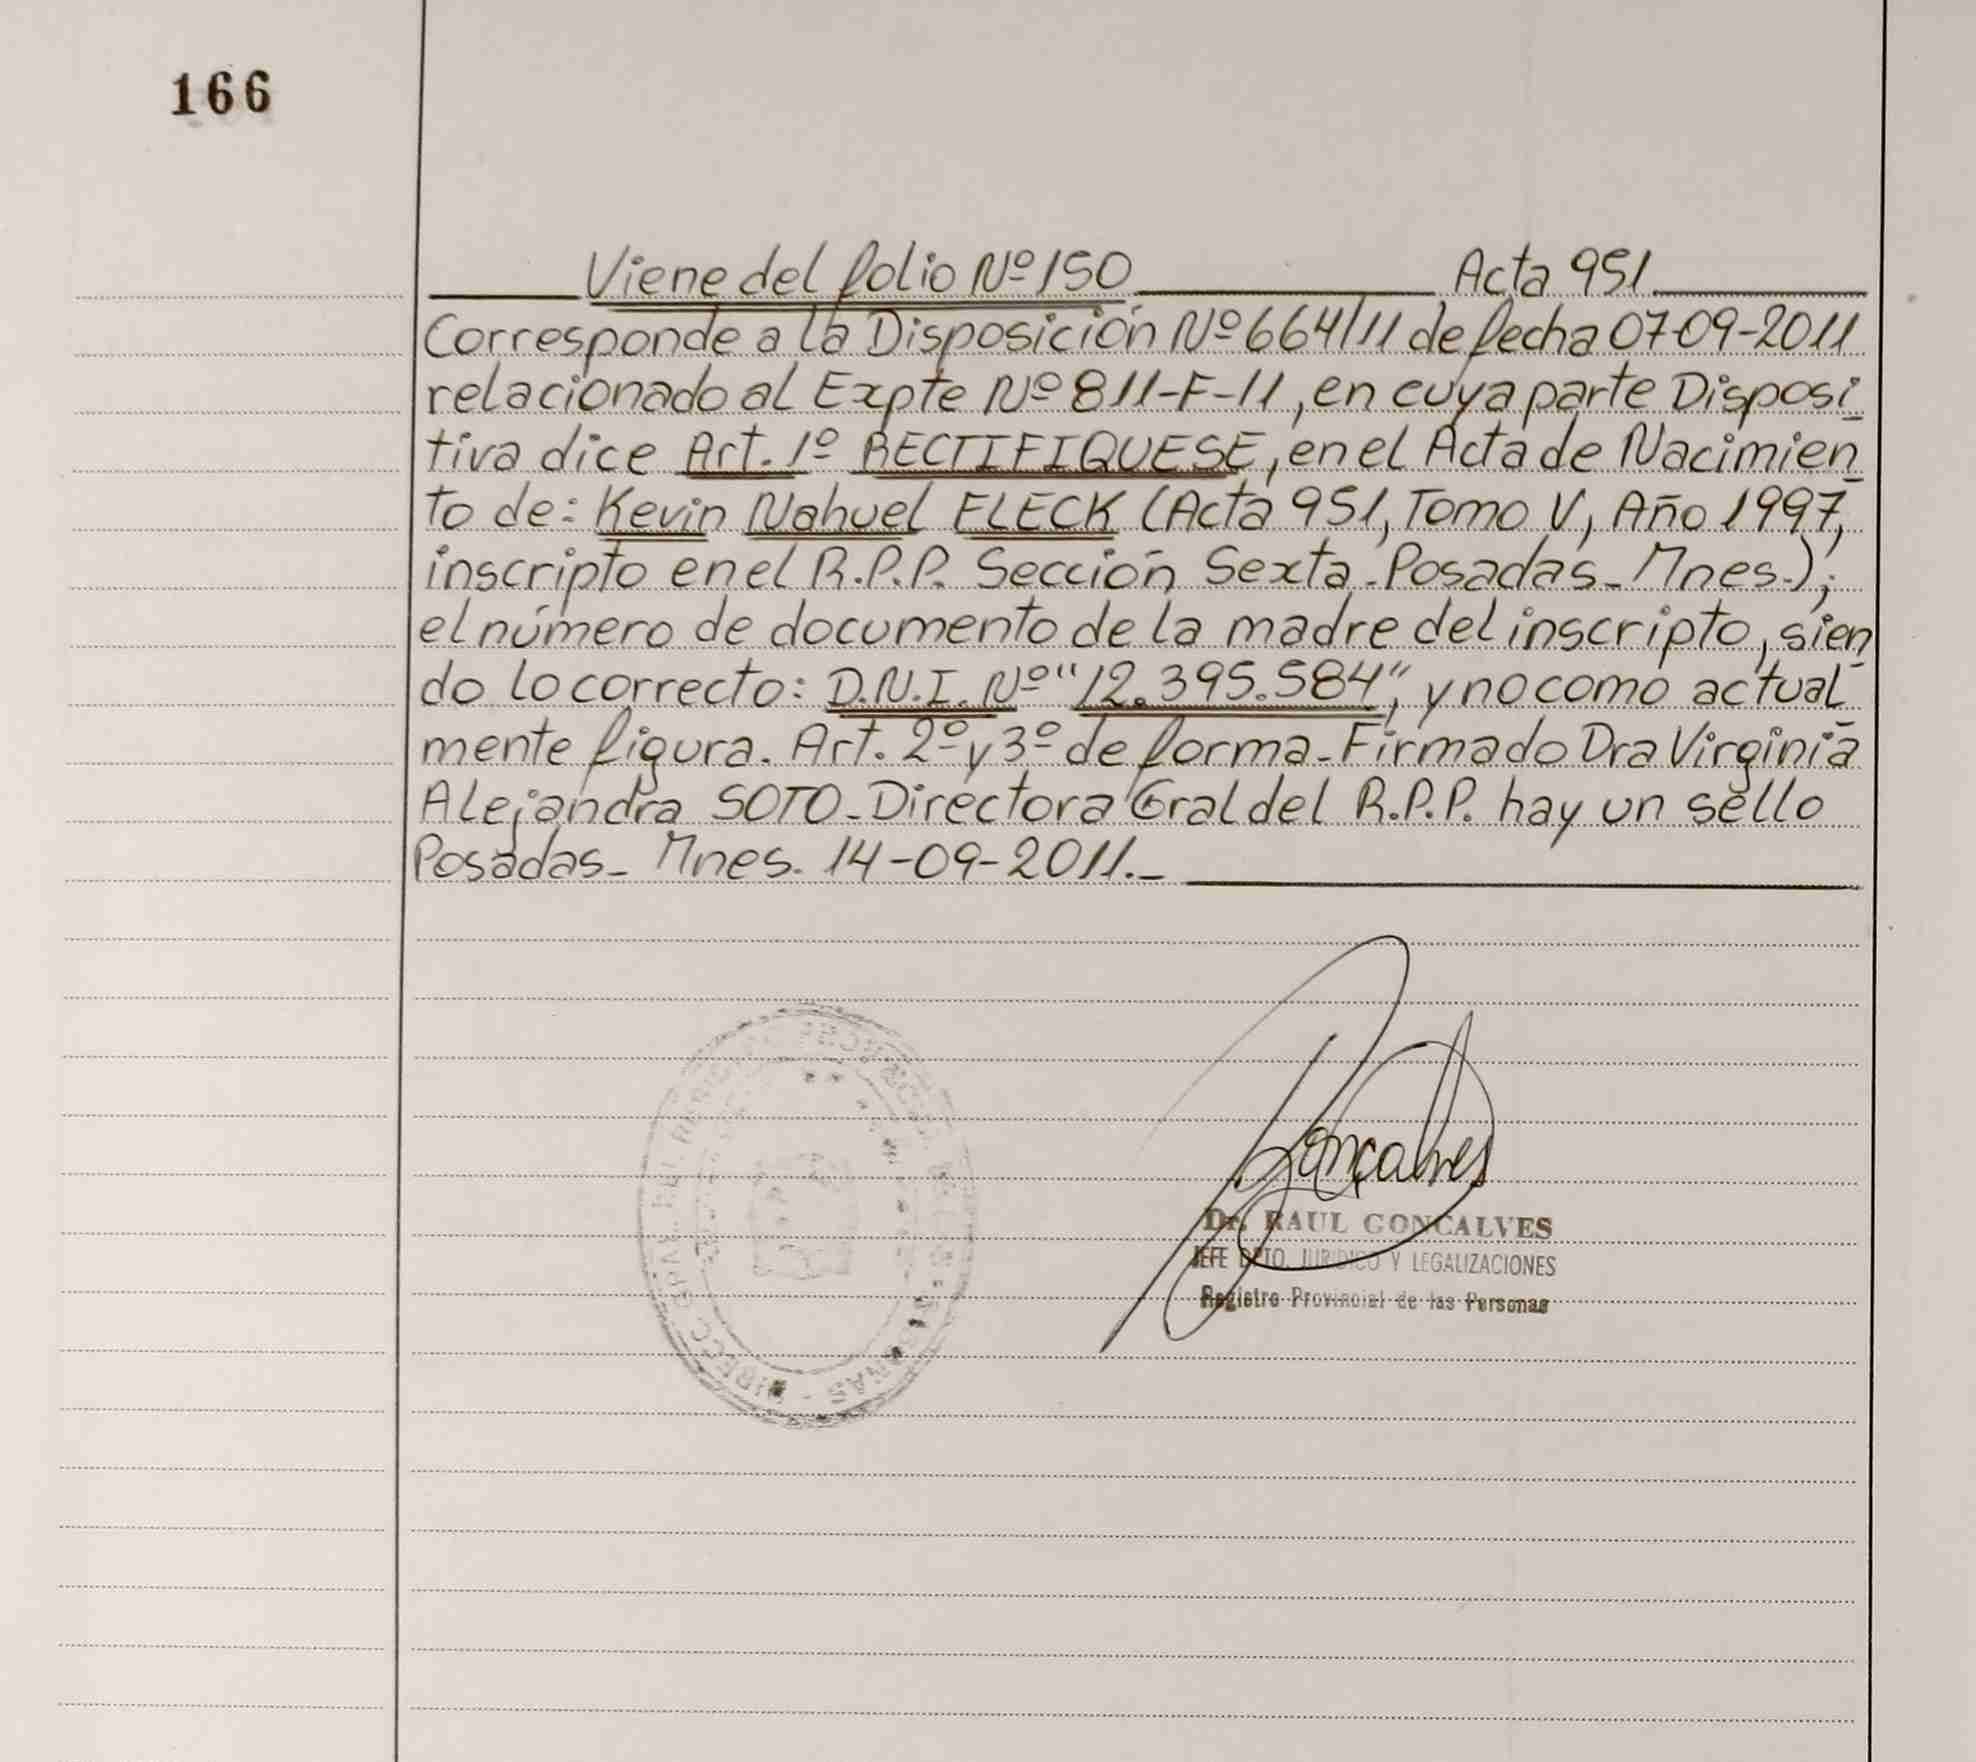 166
Viene del folio Nº 150 Acta 951
Corresponde a la Disposición Nº 664/11 de fecha 07-09-2011
relacionado al Expte Nº 811-F-11, en cuya parte Disposi-
tiva dice Art. 1º RECTIFIQUESE, en el Acta de Nacimien-
to de: Kevin Nahuel FLECK (Acta 951, Tomo V, Año 1997,
inscripto en el R.P.P. Sección Sexta - Posadas - Mnes.);
el número de documento de la madre del inscripto, sien-
do lo correcto: D.N.I. Nº "12.395.584", y no como actual-
mente figura. Art. 2º y 3º de forma - Firmado Dra Virginia
Alejandra SOTO - Directora Gral del R.P.P. hay un sello
Posadas - Mnes. 14-09-2011.-
Gonçalves
Dr. RAUL GONCALVES
JEFE DPTO. JURIDICO Y LEGALIZACIONES
Registro Provincial de las Personas